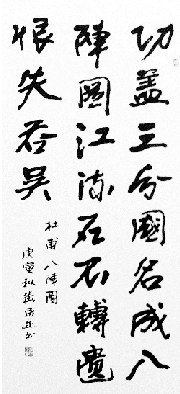 功盖三分國名成八
陣圖江流石不轉遺
恨失吞吴
杜甫八陣圖